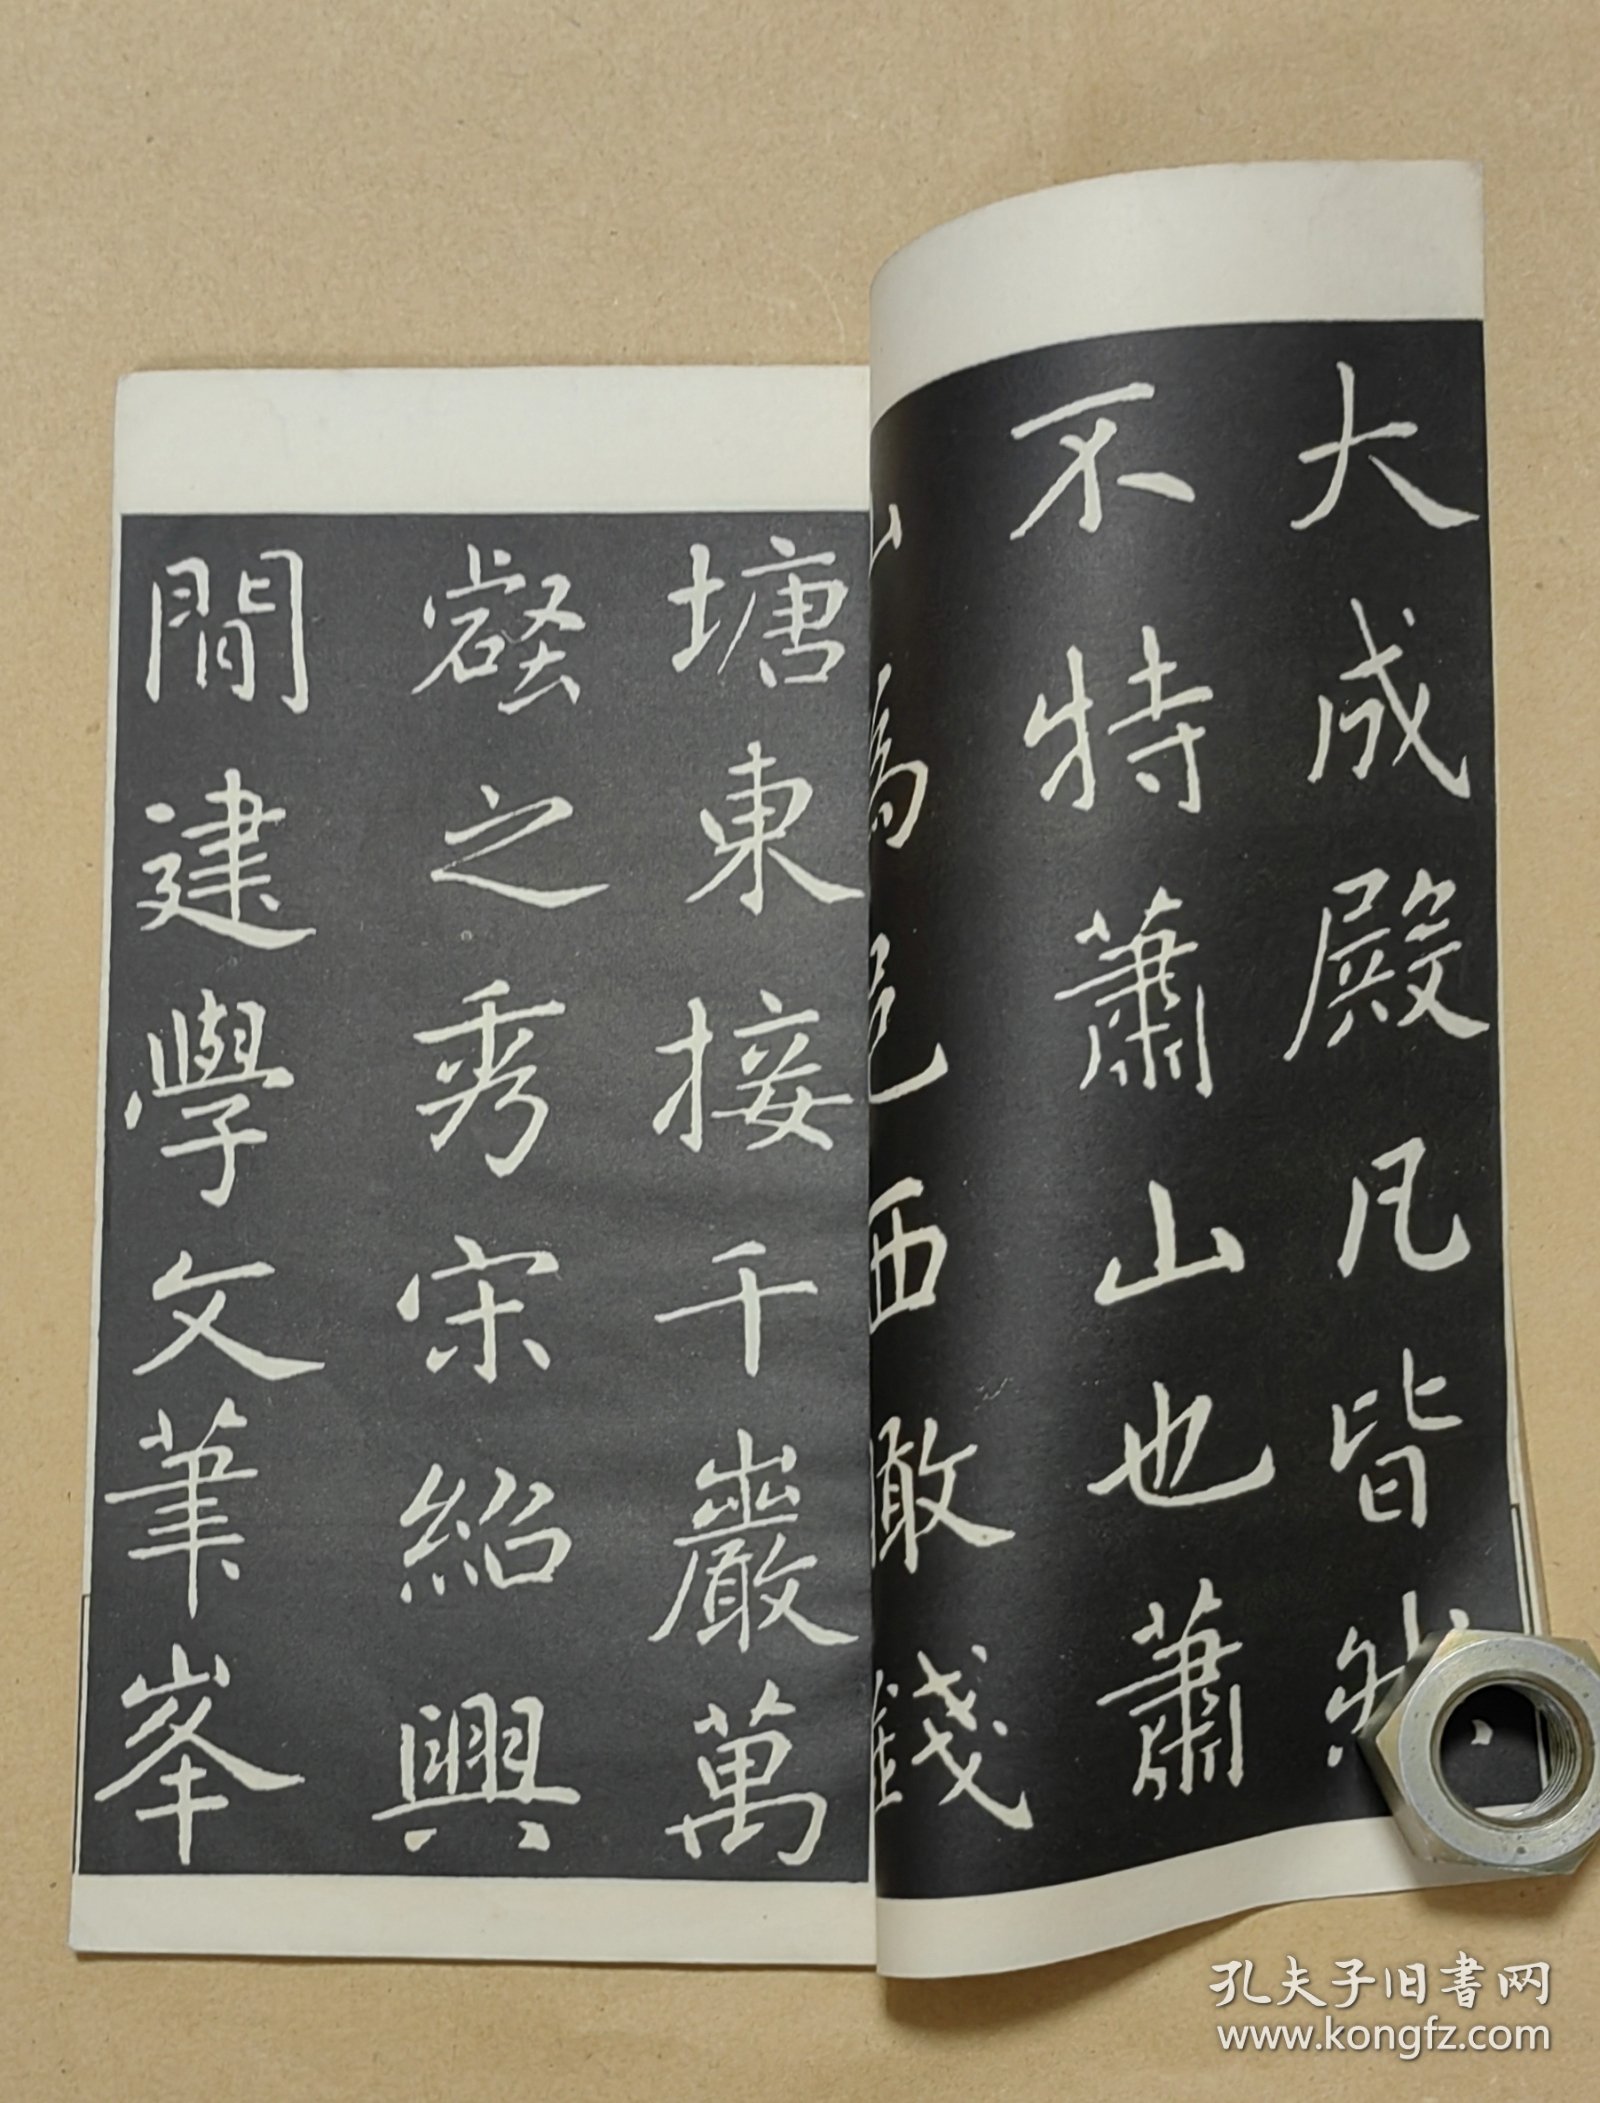 大成殿凡皆然
不特蕭山也蕭
山為邑西瞰錢
塘東接千巖萬
壑之秀宋紹興
間建學文筆峯
孔夫子旧书网
www.kongfz.com